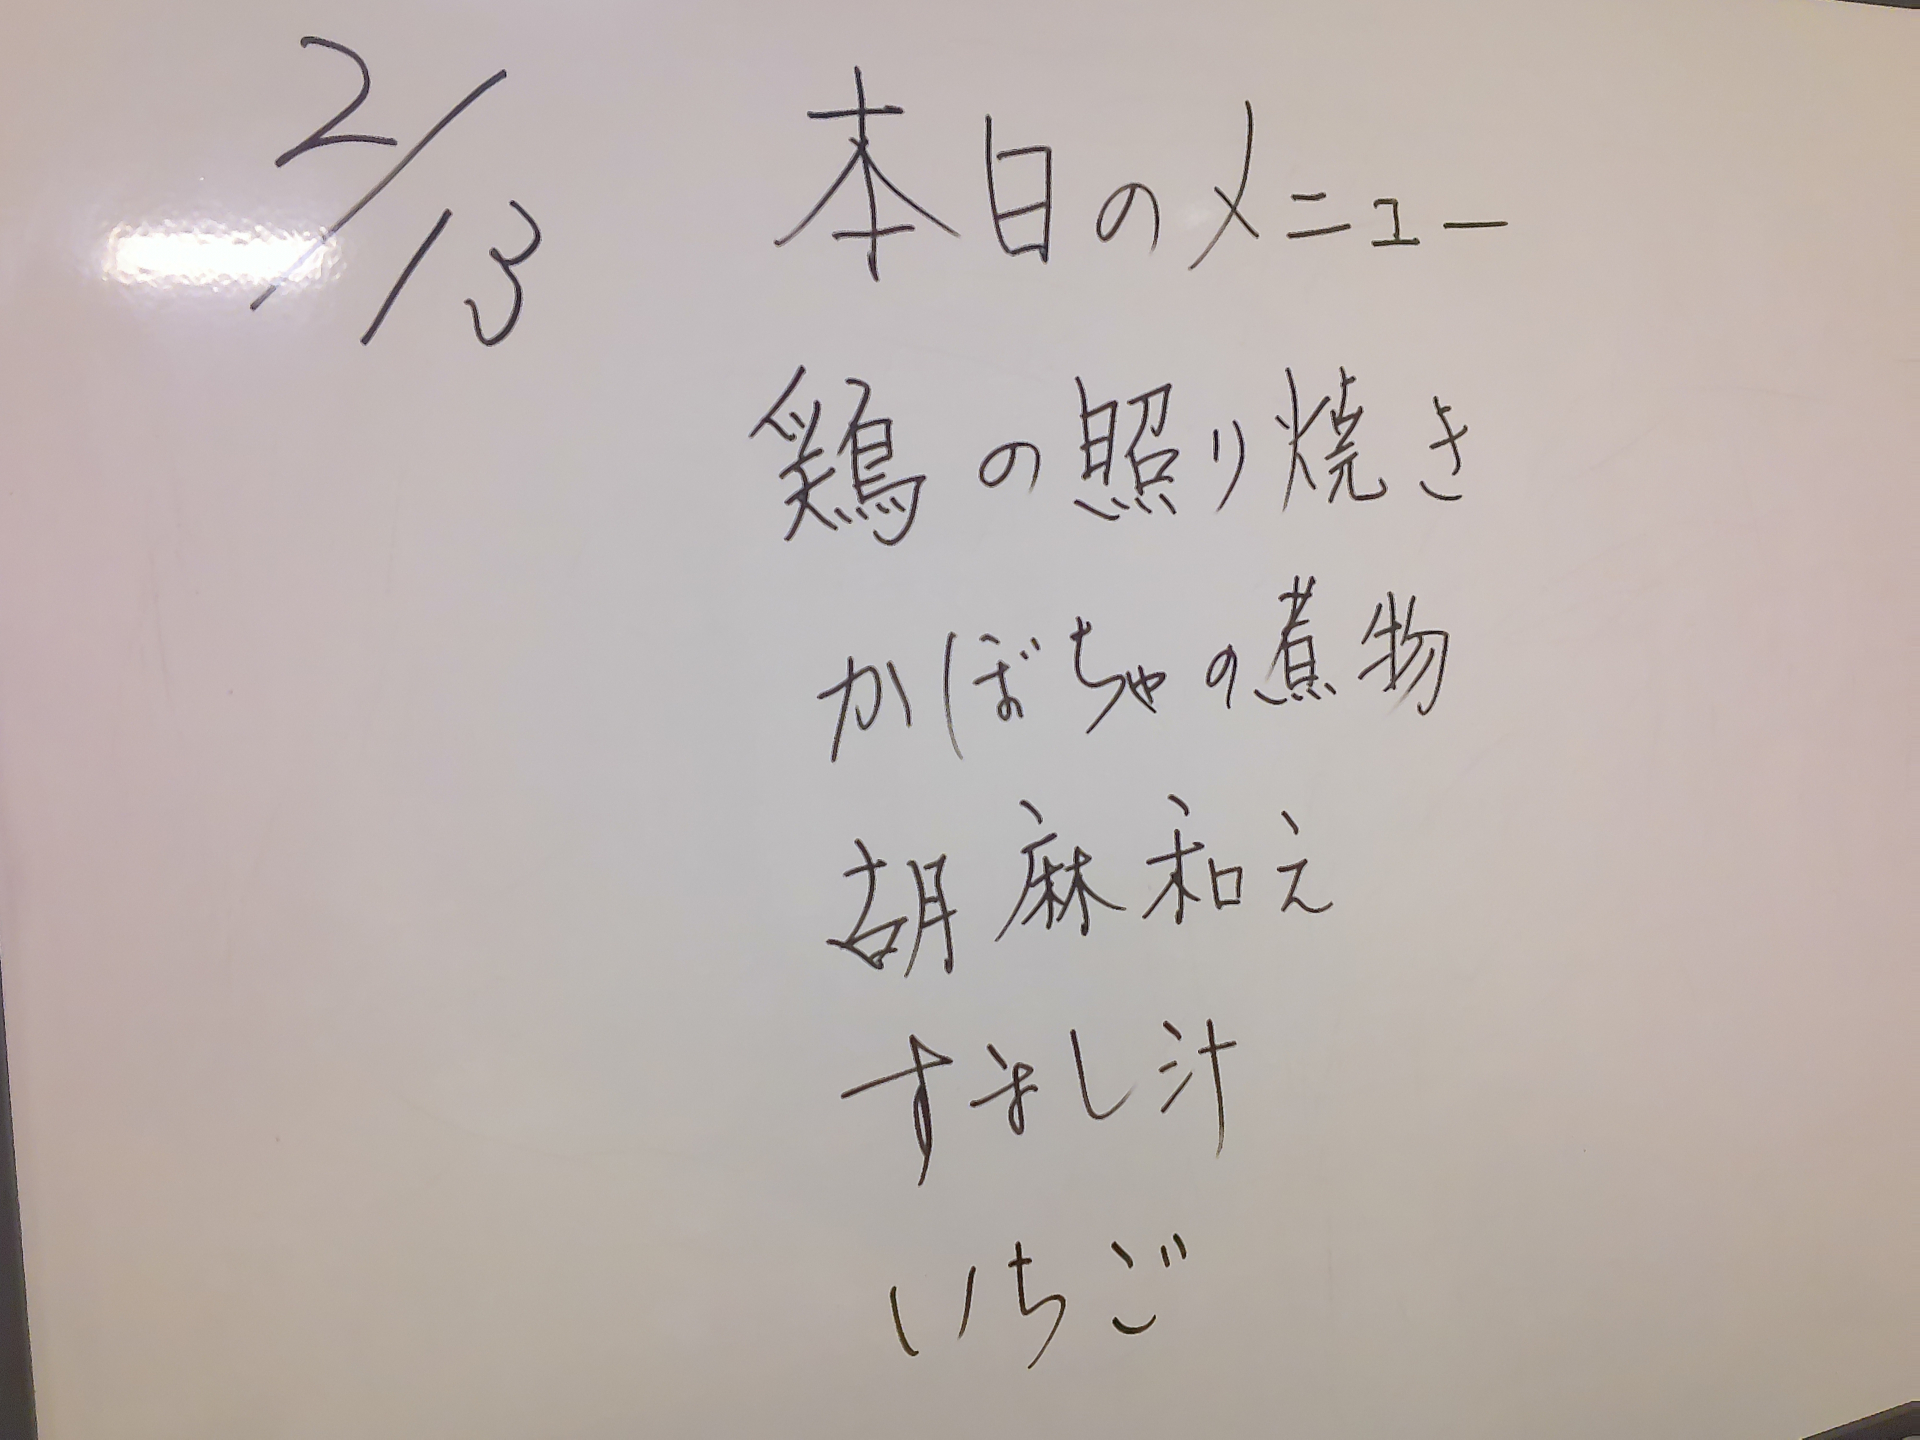 2/13
本日のメニュー
鶏の照り焼き
かぼちゃの煮物
胡麻和え
すまし汁
いちご